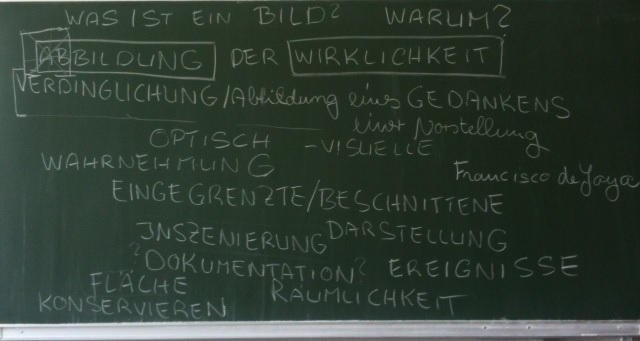 WAS IST EIN BILD? WARUM?
ABBILDUNG DER WIRKLICHKEIT
VERDINGLICHUNG/Abbildung eines GEDANKENS
einer Vorstellung
OPTISCH - VISUELLE
WAHRNEHMUNG
Francisco de Goya
EINGEGRENZTE/BESCHNITTENE
INSZENIERUNG DARSTELLUNG
?DOKUMENTATION? EREIGNISSE
FLÄCHE RÄUMLICHKEIT
KONSERVIEREN